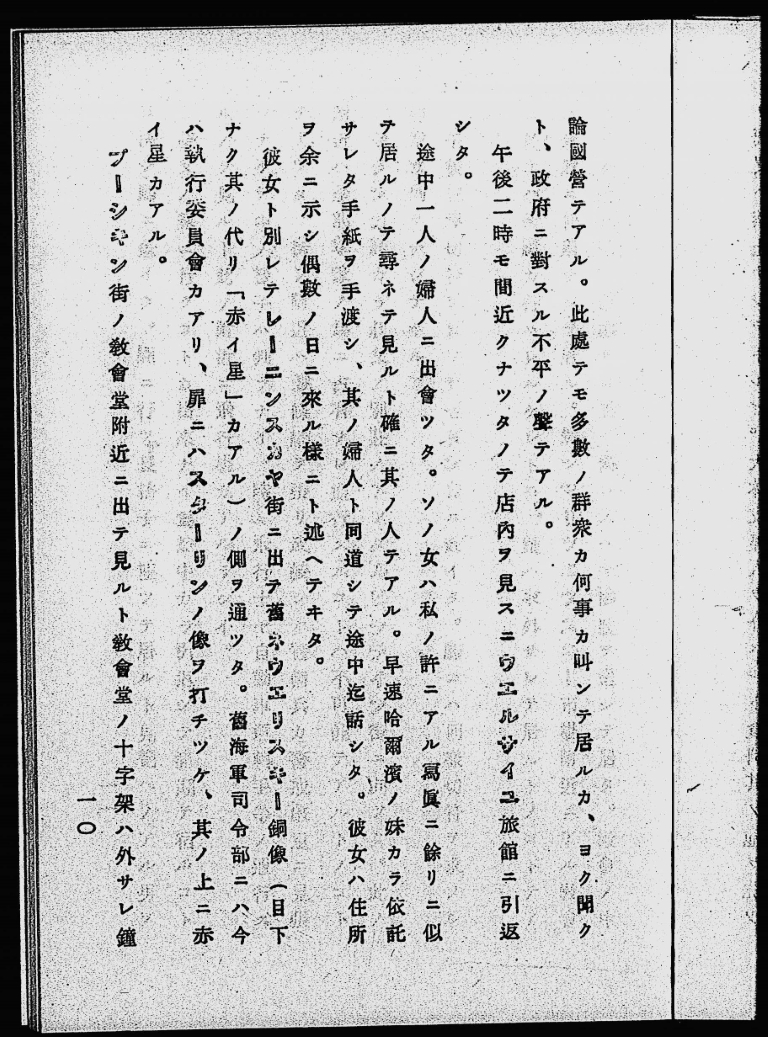 論國營テアル。此處テモ多數ノ群衆カ何事カ叫ンテ居ルカ、ヨク聞ク
ト、政府ニ對スル不平ノ聲テアル。
午後二時モ間近クナツタノテ店內ヲ見スニウエルサイユ旅館ニ引返
シタ。
途中一人ノ婦人ニ出會ツタ。ソノ女ハ私ノ許ニアル寫眞ニ餘リニ似
テ居ルノテ尋ネテ見ルト確ニ其ノ人テアル。早速哈爾濱ノ妹カラ依託
サレタ手紙ヲ手渡シ、其ノ婦人ト同道シテ途中迄話シタ。彼女ハ住所
ヲ余ニ示シ偶數ノ日ニ來ル樣ニト述ヘテキタ。
彼女ト別レテレーニンスカヤ街ニ出テ舊ネウエリスキー銅像（目下
ナク其ノ代リ「赤イ星」カアル）ノ側ヲ通ツタ。舊海軍司令部ニハ今
ハ執行委員會カアリ、扉ニハスターリンノ像ヲ打チツケ、其ノ上ニ赤
イ星カアル。
プーシキン街ノ敎會堂附近ニ出テ見ルト敎會堂ノ十字架ハ外サレ鐘
一〇